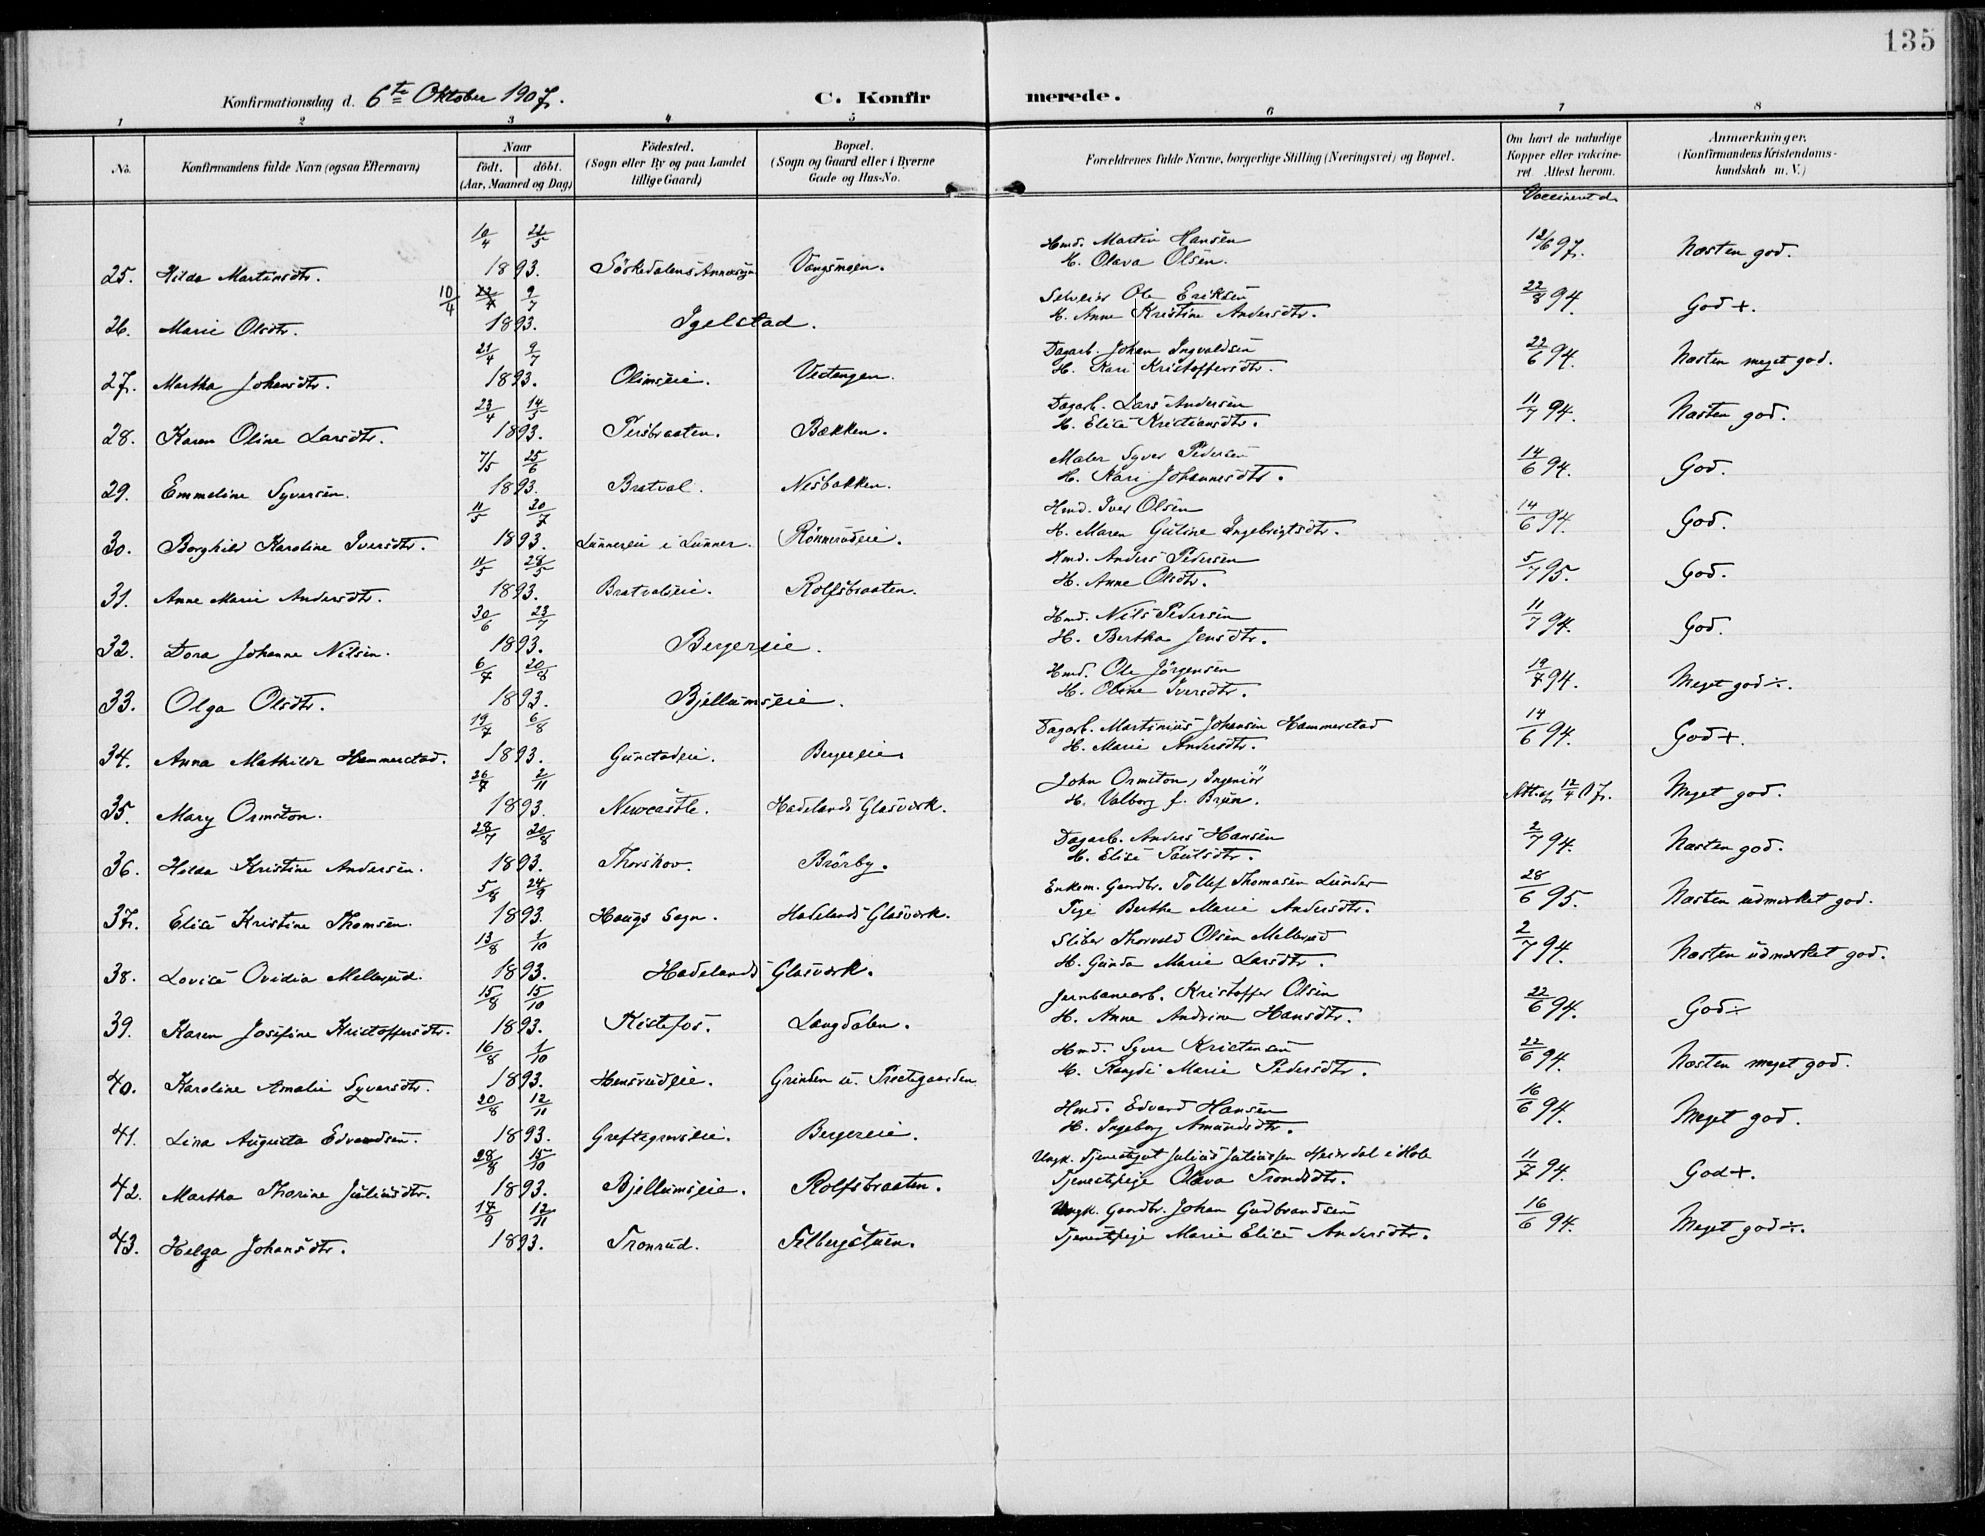 135
Konfirmationsdag d. 6te Oktober 1907.
C. Konfirmerede.
1 2 3 4 5 6 7 8
No.
Konfirmandens fulde Navn (ogsaa Efternavn)
Naar
födt. döbt.
(Aar, Maaned og Dag)
Födested.
(Sogn eller By og paa Landet
tillige Gaard)
Bopæl.
(Sogn og Gaard eller i Byerne
Gade og Hus-No.
Forældrenes fulde Navne, borgerlige Stilling (Næringsvei) og Bopæl.
Om havt de naturlige
Kopper eller vakcine-
ret. Attest herom.
Anmærkninger.
(Konfirmandens Kristendoms-
kundskab m. V.)
Vaccineret d.
10/4 22/5 Hmd. Martin Hansen
25. Hilda Martinsdtr. 1893. Sörkedalens Annexsogn Vangsmoen. H. Olava Olsen. 12/6 97. Næsten god.
10/4 22/4 9/7 Selveier Ole Eriksen
26. Marie Olsdtr. 1893. Igelstad. H. Anne Kristine Andersdtr. 22/8 94. God +.
21/4 9/7 Dagarb. Johan Ingvaldsen
27. Martha Johansdtr. 1893. Olimseie. Vestengen. H. Kari Kristoffersdtr. 22/6 94. Næsten meget god.
23/4 14/5 Dagarb. Lars Andersen
28. Karen Oline Larsdtr. 1893. Persbraaten. Bækken. H. Elise Kristiansdtr. 11/7 94. Næsten god.
7/5 25/6 Maler Syver Pedersen
29. Emmeline Syversen. 1893. Bratval. Nesbakken. H. Kari Johannesdtr. 14/6 94. God.
11/5 30/7 Hmd. Iver Olsen
30. Borghild Karoline Iversdtr. 1893. Lunnereie i Lunner. Rönnerudeie. H. Maren Guline Ingebrigtsdtr. 14/6 94. God.
11/5 28/5 Hmd. Anders Pedersen
31. Anne Marie Andersdtr. 1893. Bratvalseie. Rolfsbraaten. H. Anne Olsdtr. 5/7 95. God.
30/6 23/7 Hmd. Nils Pedersen
32. Dora Johanne Nilsen. 1893. Bergereie. H. Bertha Jensdtr. 11/7 94. God.
6/7 20/8 Hmd. Ole Jörgensen
33. Olga Olsdtr. 1893. Bjellumseie. H. Oline Iversdtr. 19/7 94. Meget god ÷.
19/7 6/8 Dagarb. Martinius Johansen Hammerstad
34. Anna Mathilde Hammerstad. 1893. Gunstadeie. Bergereie. H. Marie Andersdtr. 14/6 94. God +.
26/7 2/11 John Ormston, Ingeniör
35. Mary Ormston. 1893. Newcastle. Hadelands Glasværk. H. Valborg f. Brun. Att. af 12/4 07. Meget god.
28/7 20/8 Dagarb. Anders Hansen
36. Hilda Kristine Andersen. 1893. Thorshov. Brörby. H. Elise Paulsdtr. 2/7 94. Næsten god.
5/8 24/9 Enkem. Gaardbr. Tollef Thomasen Lunder
37. Elise Kristine Thomsen. 1893. Haugs Sogn. Hadelands Glasværk. Pige Berthe Marie Andersdtr. 28/6 95. Næsten udmærket god.
13/8 1/10 Sliber Thorvald Olsen Mellerud
38. Lovise Ovidia Mellerud. 1893. Hadelands Glasværk. H. Gunda Marie Larsdtr. 2/7 94. Næsten udmærket god.
15/8 15/10 Jernbanearb. Kristoffer Olsen
39. Karen Josefine Kristoffersdtr. 1893. Kistefos. Langdalen. H. Anne Andrine Hansdtr. 22/6 94. God ÷
16/8 1/10 Hmd. Syver Kristensen
40. Karoline Amalie Syversdtr. 1893. Hensrudeie. Grinden u. Prestegaarden. H. Randi Marie Pedersdtr. 22/6 94. Næsten meget god.
20/8 12/11 Hmd. Edvard Hansen
41. Lina Augusta Edvardsen. 1893. Greftegreveie. Bergereie. H. Ingeborg Amundsdtr. 16/6 94. Meget god.
28/8 15/10 Ungk. Tjenestegut Julius Juliussen i Hole
42. Martha Thorine Juliusdtr. 1893. Bjellumseie. Rolfsbraaten. Tjenestpige Olava Trondsdtr. 11/7 94. God +.
17/9 12/11 Ungk. Gaardbr. Johan Gudbrandsen
43. Helga Johansdtr. 1893. Tronrud. Felbergstuen. Tjenestpige Marie Elise Andersdtr. 16/6 94. Meget god ÷.